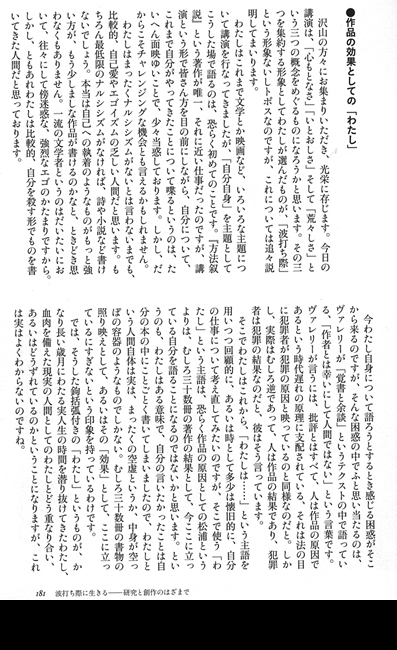 ●作品の効果としての「わたし」
沢山の方々にお集まりいただき、光栄に存じます。今日の
講演は、「心もとなさ」「いとおしさ」そして「荒々しさ」と
いう三つの概念をめぐるものになろうかと思います。その三
つを集約する形象としてわたしが選んだものが、「波打ち際」
という形象ないしトポスなのですが、これについては追々説
明してまいります。
わたしはこれまで文学とか映画など、いろいろな主題につ
いて講演を行なってきましたが、「自分自身」を主題として
こうした場で語るのは、恐らく初めてのことです。『方法叙
説』という著作が唯一、それに近い仕事だったのですが、講
演という形で皆さん方を目の前にしながら、自分について、
これまで自分がやってきたことについて喋るというのは、た
いへん面映ゆいことで、少々当惑しております。しかし、だ
からこそチャレンジングな機会とも言えるかもしれません。
わたしはまったくナルシシズムがないとは言わないまでも、
比較的、自己愛やエゴイズムの乏しい人間だと思います。も
ちろん最低限のナルシシズムがなければ、詩や小説など書け
ないでしょう。本当は自己への執着のようなものがもっと強
い方が、もう少しましな作品が書けるのかなと、ときどき思
わなくもありません。一流の文学者というのはだいたいにお
いて、往々にして傍迷惑な、強烈なエゴのかたまりですから。
しかし、ともあれわたしは比較的、自分を殺す形でものを書
いてきた人間だと思っております。
今わたし自身について語ろうとするとき感じる困惑がそこ
から来るのですが、そんな困惑の中でふと思い当たるのは、
ヴァレリーが「覚書と余談」というテクストの中で語ってい
る、「作者とは幸いにして人間ではない」という言葉です。
ヴァレリーが言うには、批評とはすべて、人は作品の原因で
あるという時代遅れの原理に支配されている、それは法の目
に犯罪者が犯罪の原因と映っているのと同様なのだと。しか
し、実際はむしろ逆であって、人は作品の結果であり、犯罪
者は犯罪の結果なのだと、彼はそう言っています。
そこでわたしはこれから、「わたしは……」という主語を
用いつつ回顧的に、あるいは時として多少は懐旧的に、自分
の仕事について考え直してみたいのですが、そこで使う「わ
たし」という主語は、恐らく作品の原因としての松浦という
よりは、むしろ三十数冊の著作の結果として、今ここに立っ
ている自分を語ることになるのではないかと思います。とい
うのも、わたしはある意味で、自分の言いたかったことは自
分の本の中にことごとく書いてしまいましたので、わたしと
いう人間自体は実は、まったくの空虚というか、中身が空っ
ぽの容器のようなものでしかない。むしろ三十数冊の書物の
照り映えとして、あるいはその「効果」として、ここに立っ
ているにすぎないという印象を持っているわけです。
では、そうした鉤括弧付きの「わたし」というものが、か
なり長い歳月にわたる実人生の時間を潜り抜けてきたわたし、
血肉を備えた現実の人間としてのわたしとどう重なり合い、
あるいはどうずれているのかということになりますが、これ
は実はよくわからないのですね。
181 波打ち際に生きる――研究と創作のはざまで